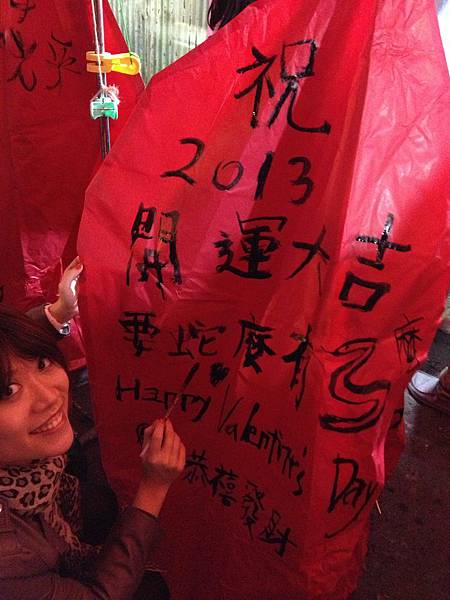 祝
2013
開運大吉
要蛇麼有
麼
Happy Valentine's Day
恭禧發財